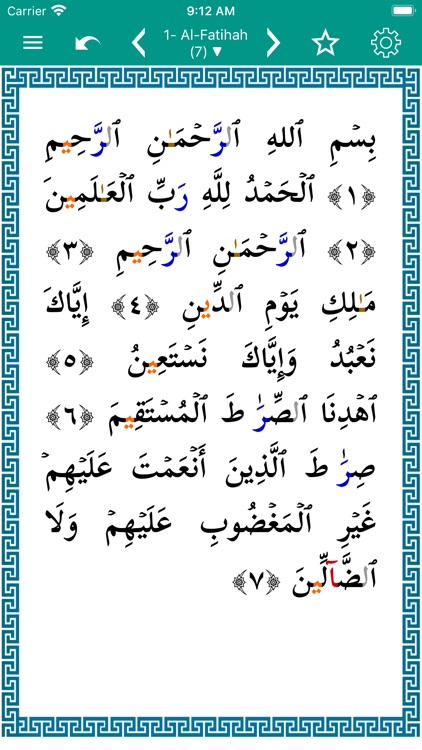 Carrier 9:12 AM
1- Al-Fatihah
(7) ▼
بِسۡمِ ٱللهِ ٱلرَّحۡمَـٰنِ ٱلرَّحِيمِ
﴿١﴾ ٱلۡحَمۡدُ لِلَّهِ رَبِّ ٱلۡعَـٰلَمِينَ
﴿٢﴾ ٱلرَّحۡمَـٰنِ ٱلرَّحِيمِ ﴿٣﴾
مَـٰلِكِ يَوۡمِ ٱلدِّينِ ﴿٤﴾ إِيَّاكَ
نَعۡبُدُ وَإِيَّاكَ نَسۡتَعِينُ ﴿٥﴾
ٱهۡدِنَا ٱلصِّرَٰطَ ٱلۡمُسۡتَقِيمَ ﴿٦﴾
صِرَٰطَ ٱلَّذِينَ أَنۡعَمۡتَ عَلَيۡهِمۡ
غَيۡرِ ٱلۡمَغۡضُوبِ عَلَيۡهِمۡ وَلَا
ٱلضَّآلِّينَ ﴿٧﴾